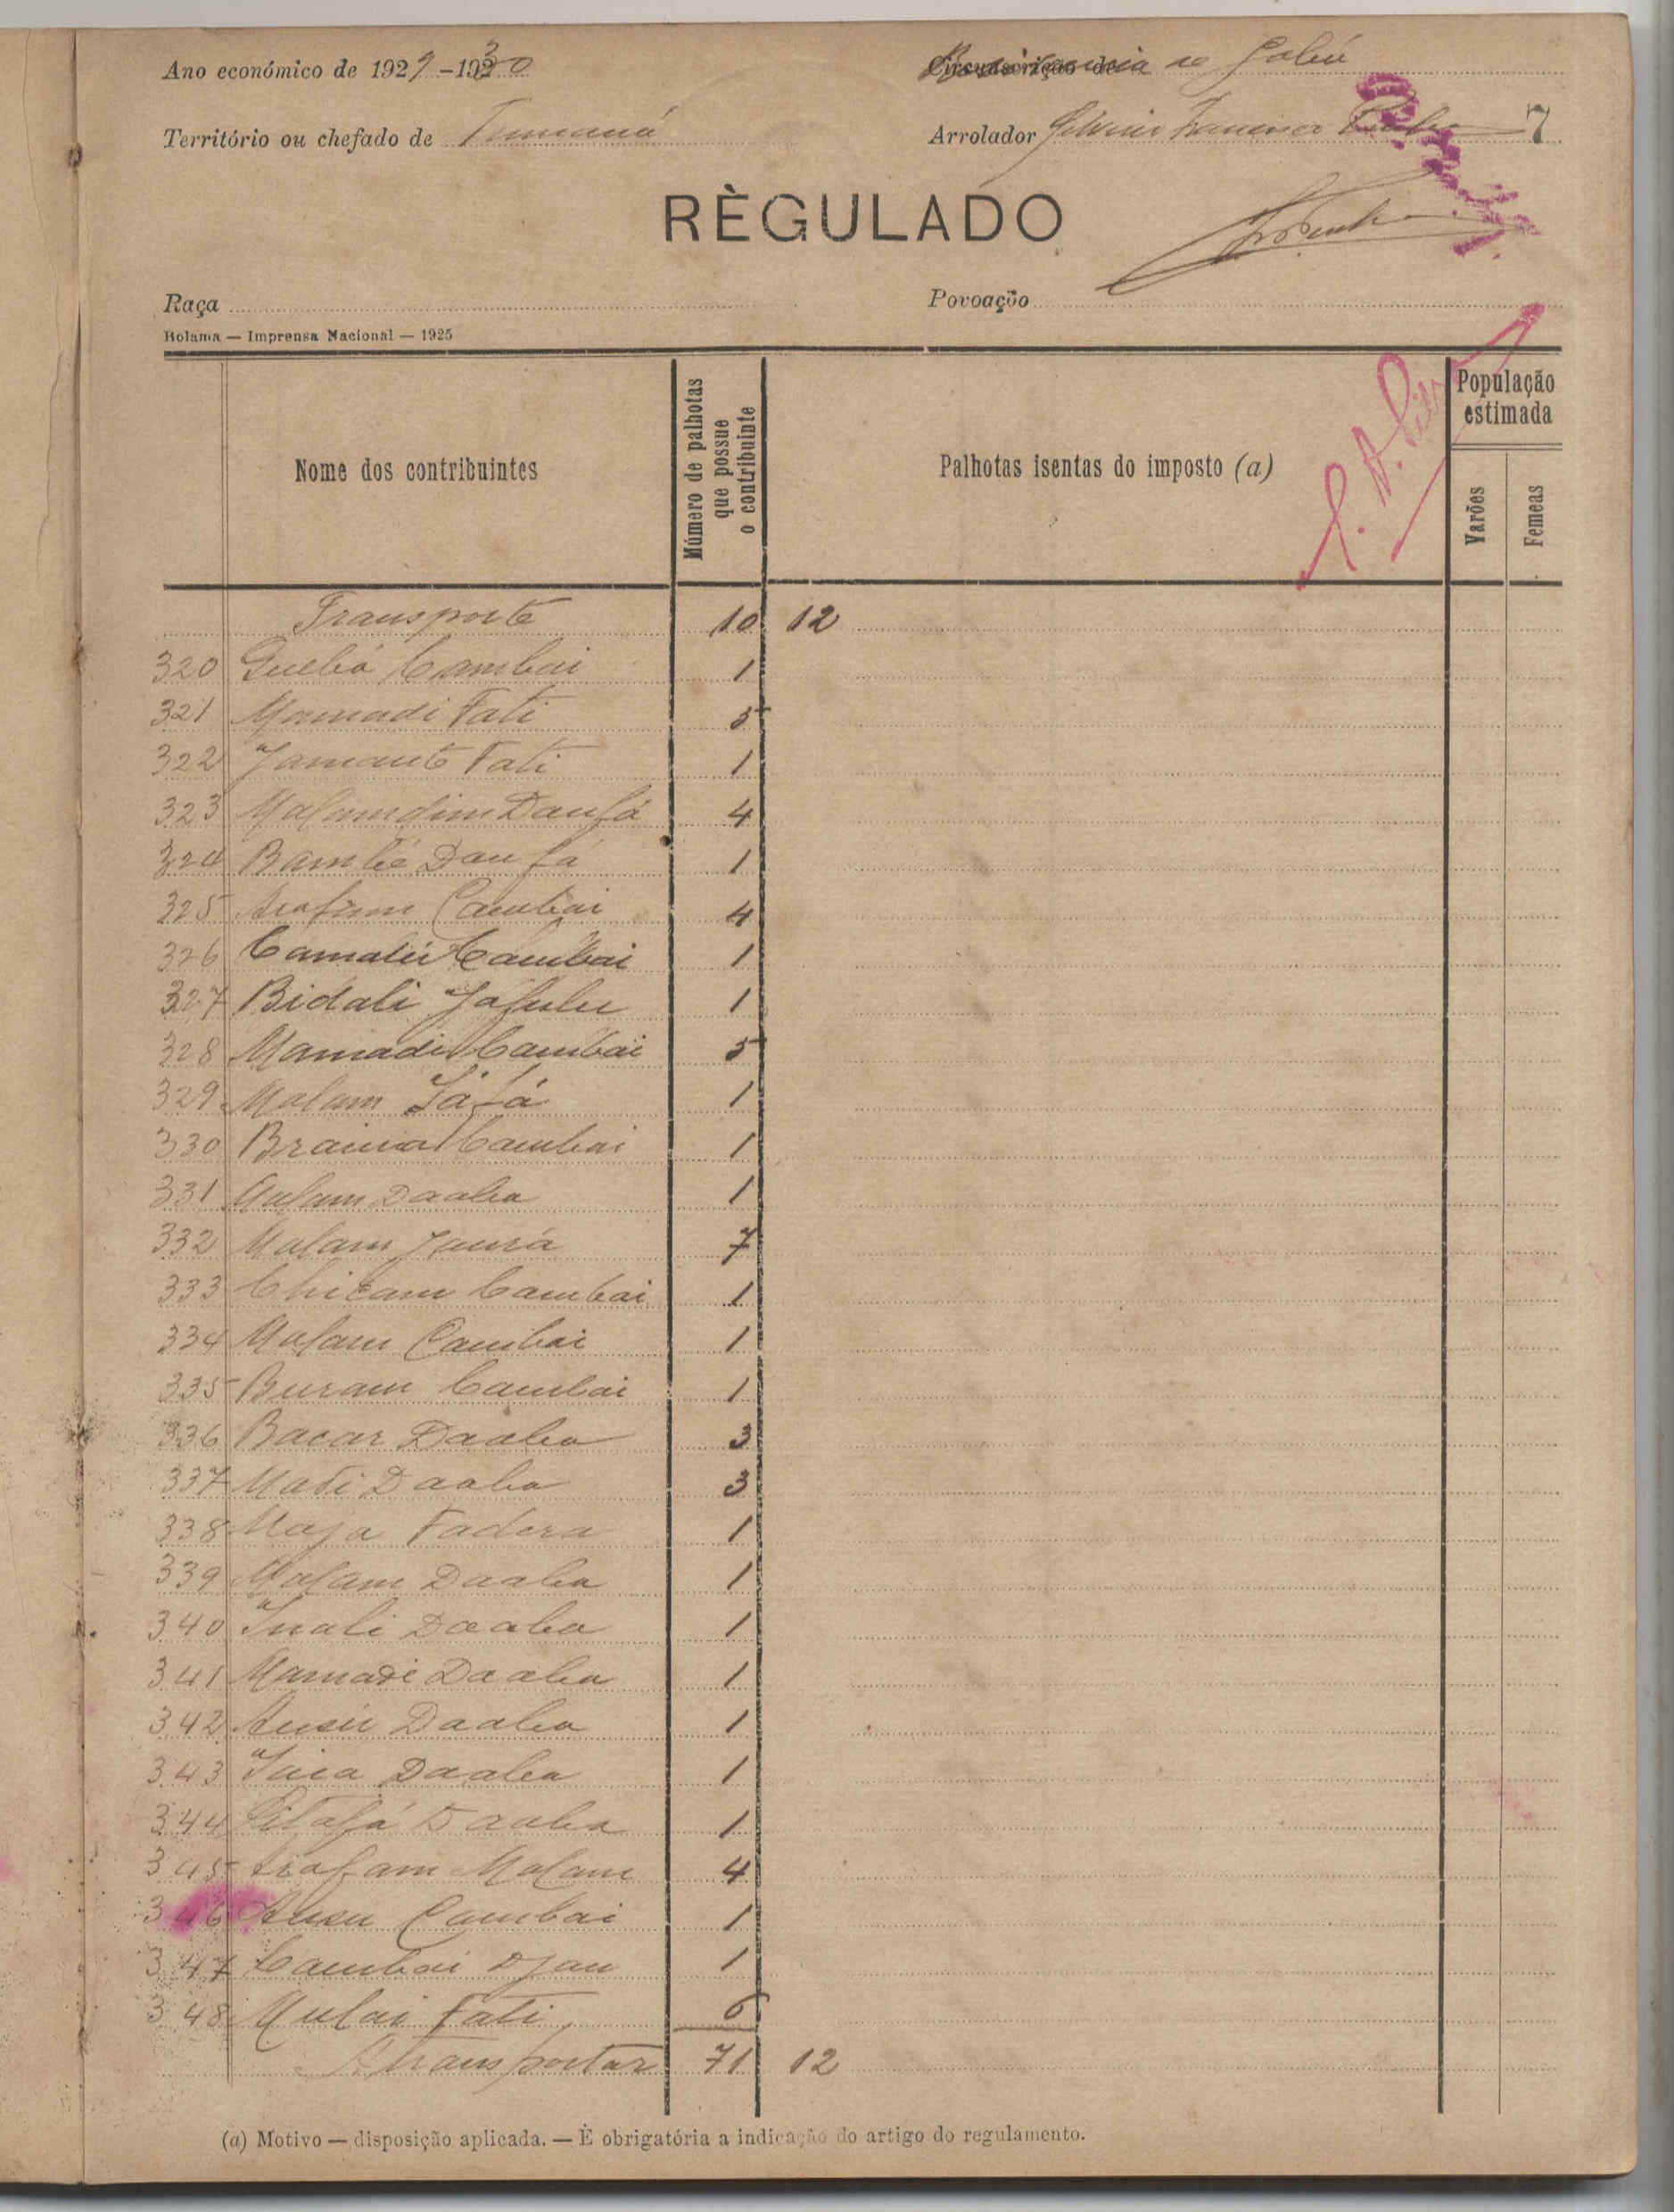 Ano económico de 1929-1930
de Gabú
Território ou chefado de Tumaná
Arrolador Francisco 7
RÈGULADO
Raça
Povoação
Bolama — Imprensa Nacional — 1925
Nome dos contribuintes
Número de palhotas que possue o contribuinte
Palhotas isentas do imposto (a)
População estimada
Varões
Femeas
Transporte 10 12
320 Quebá Cambai 1
321 Mamadi Fati 5
322 Fati 1
323 Malamdim Danfá 4
324 Bambé Danfá 1
325 Arafam Cambai 4
326 Camalú Cambai 1
327 Bidali Jafulu 1
328 Mamadi Cambai 5
329 Malam 1
330 Braima Cambai 1
331 Malam Daaba 1
332 Malam 7
333 Chicam Cambai 1
334 Malam Cambai 1
335 Buram Cambai 1
336 Bacar Daaba 3
337 Madi Daaba 3
338 Maja Fadera 1
339 Malam Daaba 1
340 Inali Daaba 1
341 Mamadi Daaba 1
342 Ansú Daaba 1
343 Daaba 1
344 Daaba 1
345 Arafam Malam 4
346 Ansu Cambai 1
347 Cambai Djau 1
348 Mulai Fati 6
A transportar 71 12
(a) Motivo — disposição aplicada. — È obrigatória a indicação do artigo do regulamento.